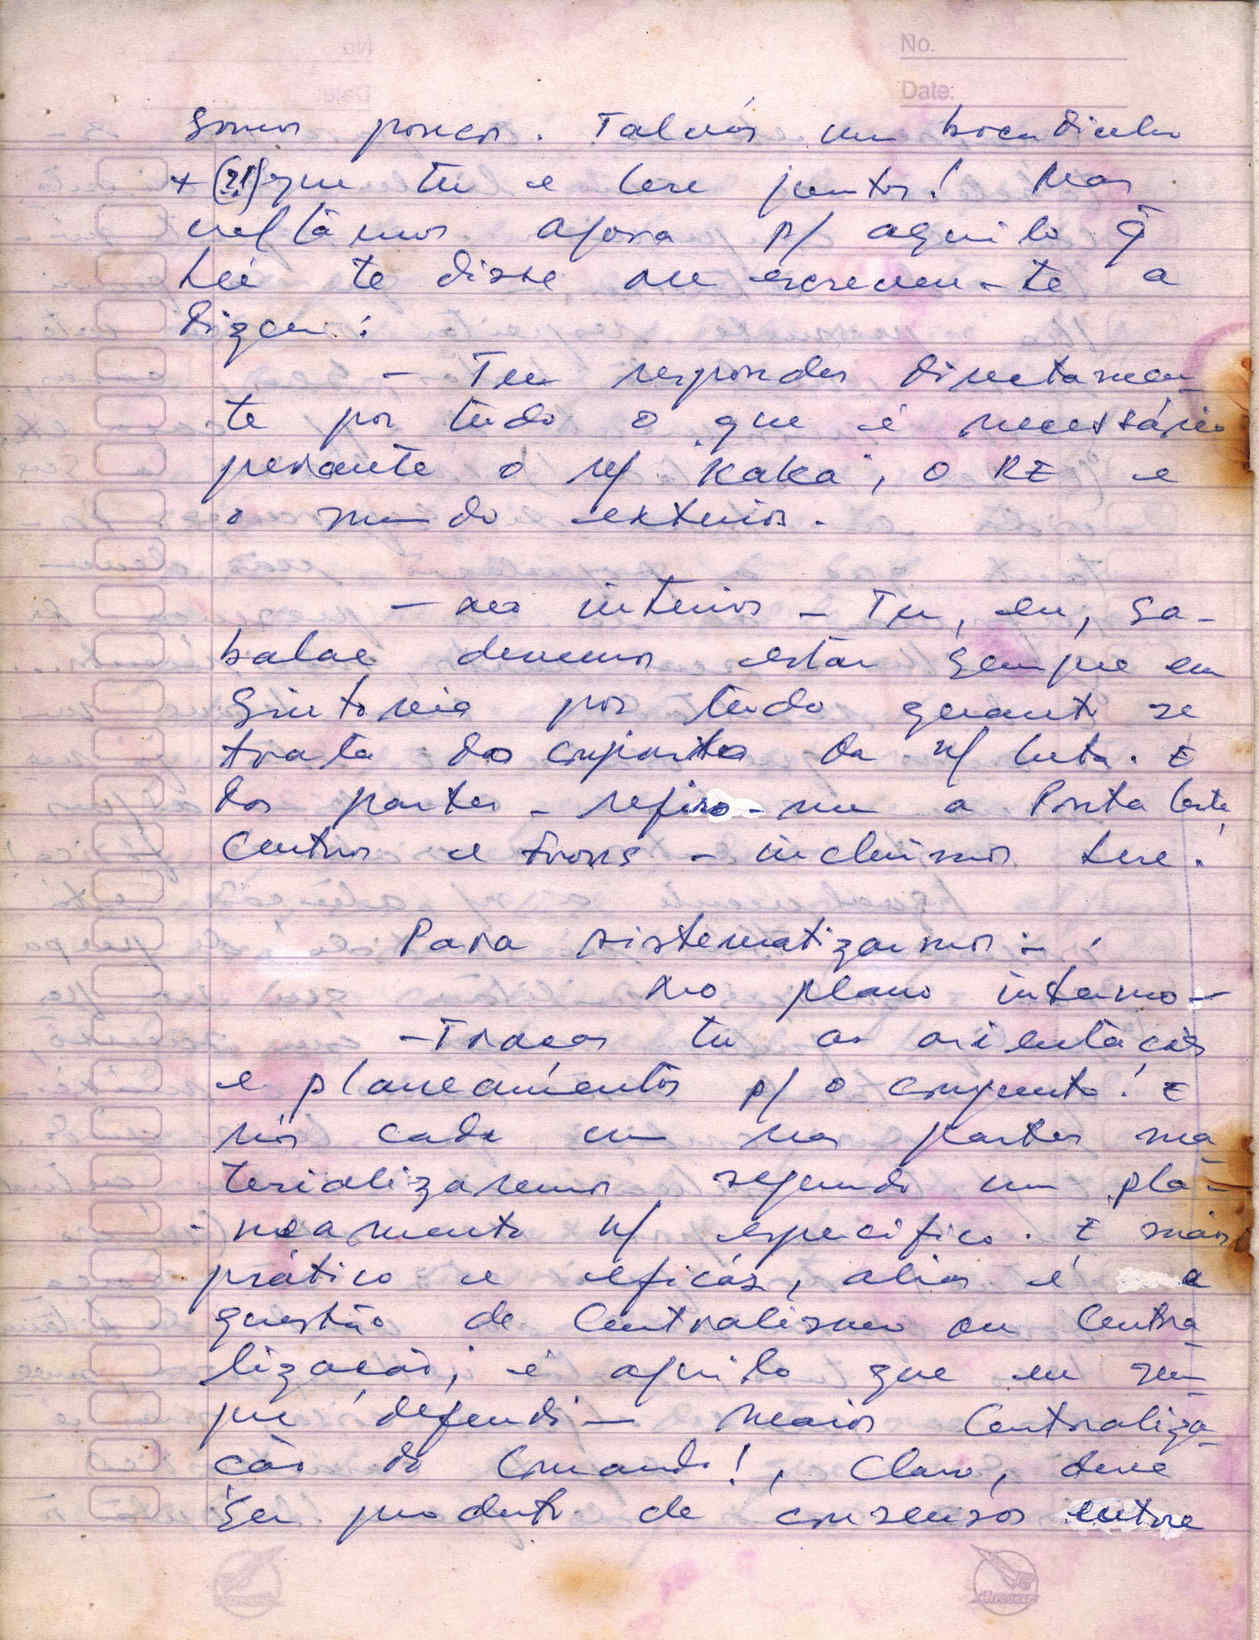 No.
Date:
somos poucos. Talvés um bocadinho
+ (21) que tu e Lere juntos! Mas
voltâmos agora p/ aquilo q̃
Lee te disse ou escreveu-te a
dizer:
- Tu respondes directamen-
te por tudo o que é necessário
perante o n/ "Kaka", o RE e
o mundo exterior.
- no interior - Tu, eu, Sa-
balae devemos estar sempre em
sintonia por tudo quanto se
trata do conjunto da n/ luta. E
dos partes - refiro-me a Ponta Leste,
Centro e Frons - incluimos Lere.
Para sistematizarmos:-
no plano interno-
- Tracas tu as orientacões
e planeamentos p/ o conjunto! E
nós cada um nas partes ma-
terializaremos segundo um pla-
neamento n/ especifico. E mais
prático e eficáz, alias é a
questão de Centralismo ou Centra-
lizacão, é aquilo que eu sem-
pre defendi - maior Centraliza-
cão do Comando!, Claro, deve
ser produto de consensos entre